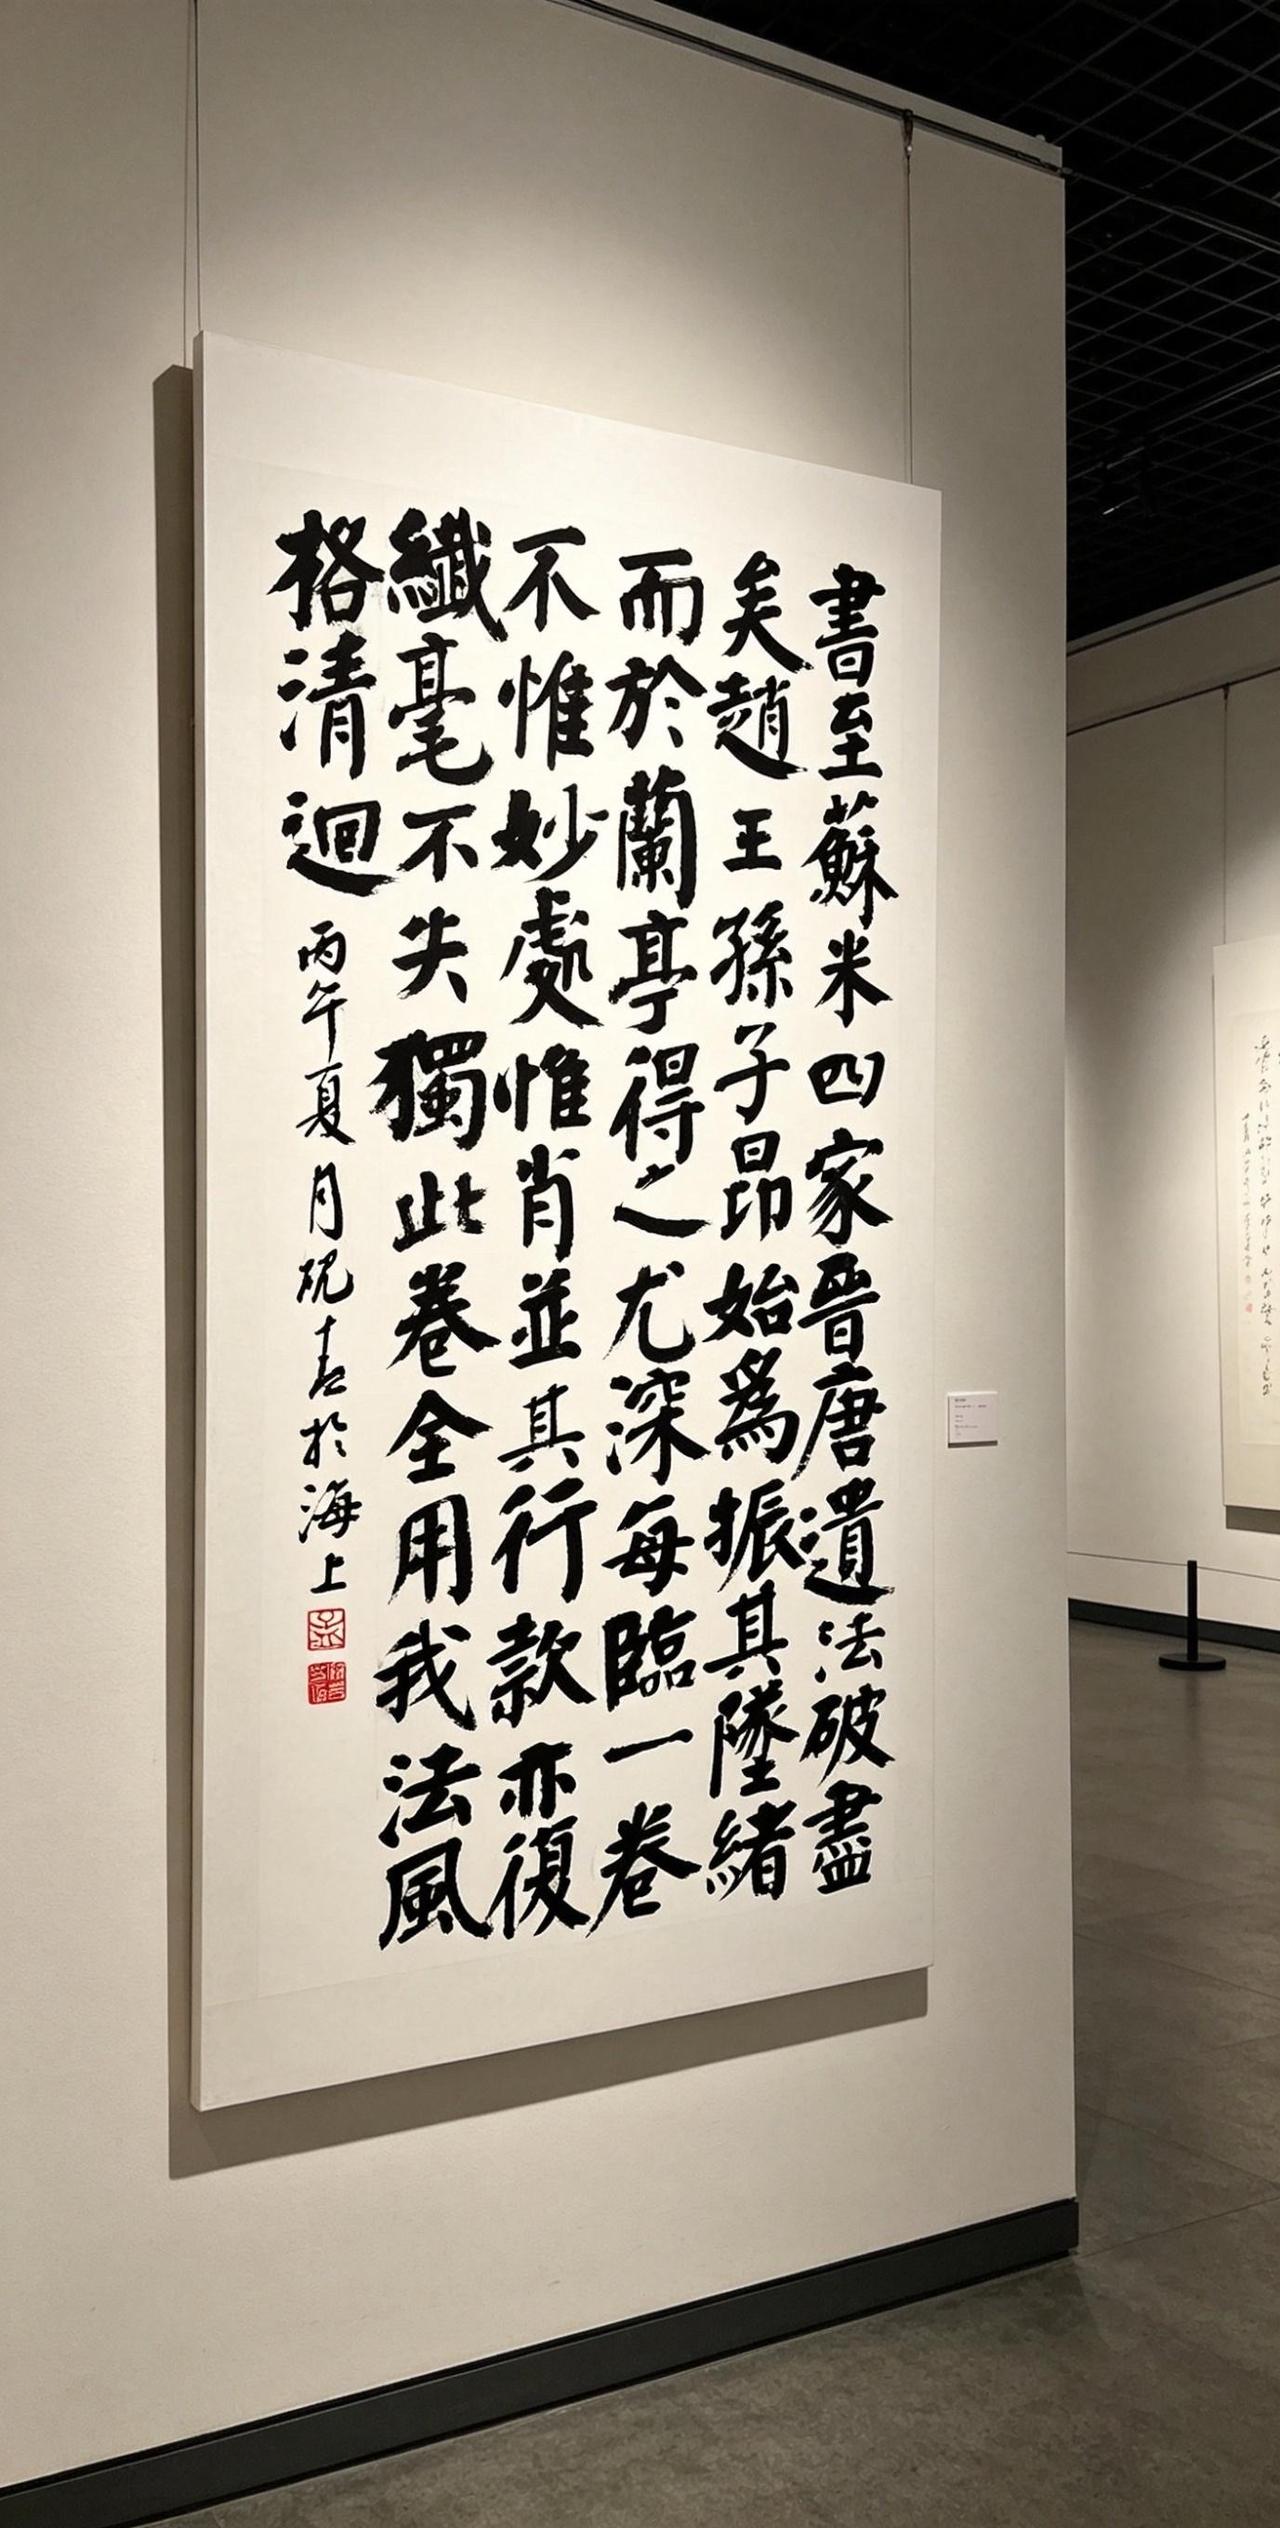 書至蘇米四家晉唐遺法破盡
矣趙王孫子昂始爲振其墜緒
而於蘭亭得之尤深每臨一卷
不惟妙處惟肖並其行款亦復
纖毫不失獨此卷全用我法風
格清迴
丙午夏月硯青於海上